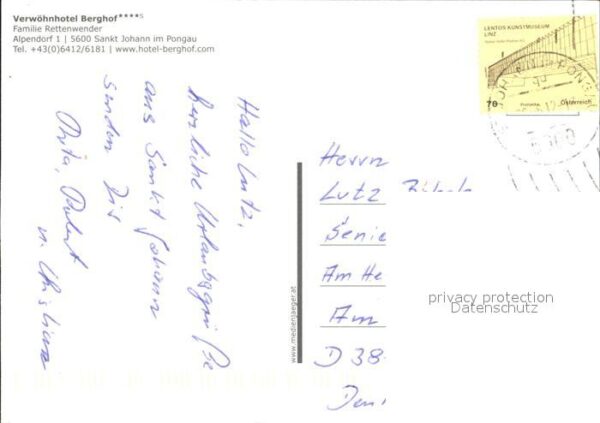 Verwöhnhotel Berghof****s
Familie Rettenwender
Alpendorf 1 | 5600 Sankt Johann im Pongau
Tel. +43(0)6412/6181 | www.hotel-berghof.com
LENTOS KUNSTMUSEUM
LINZ
70
Österreich
Hallo Lutz,
herzliche Urlaubsgrüße
aus Sankt Johann
senden Dir
Rita, Robert
u. Christiane
www.medienjaeger.at
Herrn
Lutz
Senio
Am He
Am
D 38
privacy protection
Datenschutz